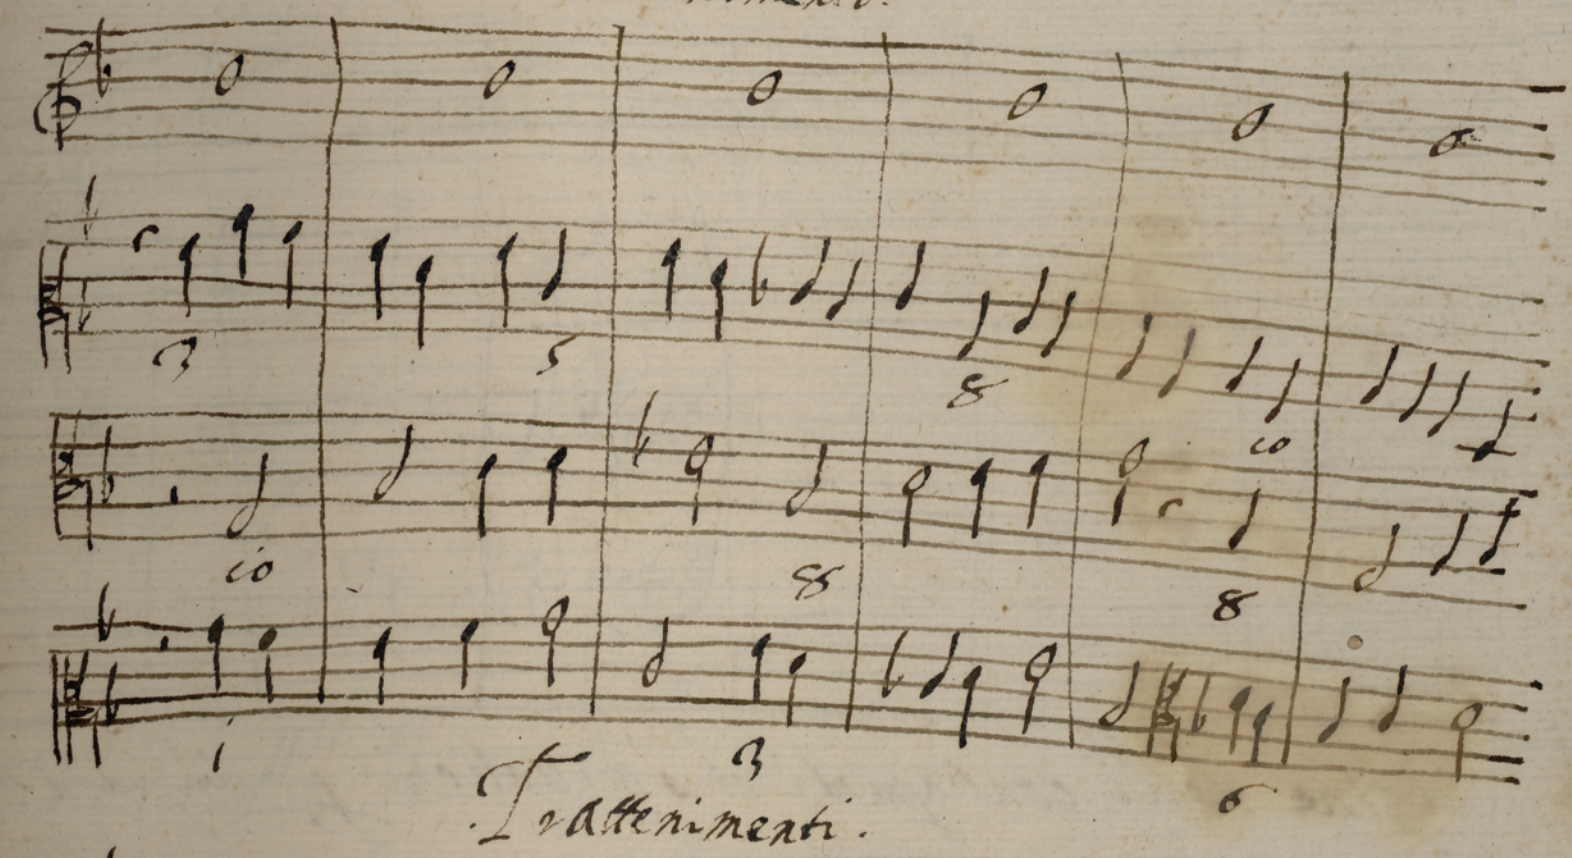 3 5
8
10
10 8
8
1 3
6
Trattenimenti.